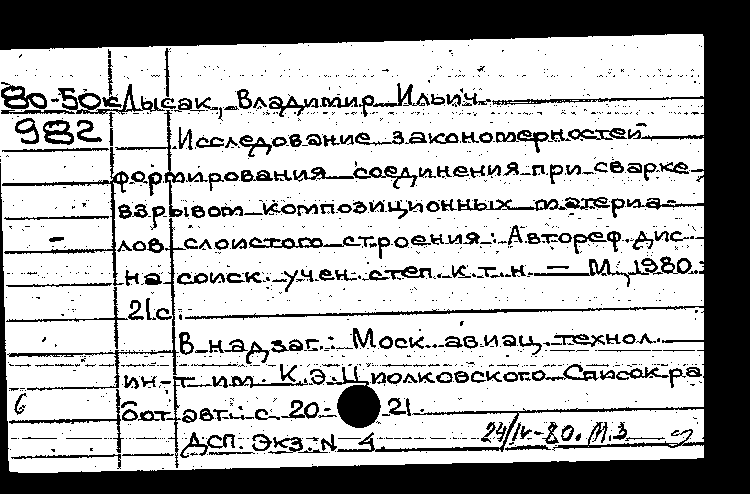 80-50к Лысак, Владимир Ильич
982 Исследование закономерностей
формирования соединения при сварке
взрывом композиционных материа-
лов слоистого строения: Автореф. дис.
на соиск. учен. степ. к.т.н. — М., 1980.
21с.
В надзаг.: Моск. авиац. технол.
ин-т им. К.Э.Циолковского. Список ра
6 бот авт.: с. 20-21.
ДСП. Экз. N 4. 24/IV-80. М.З